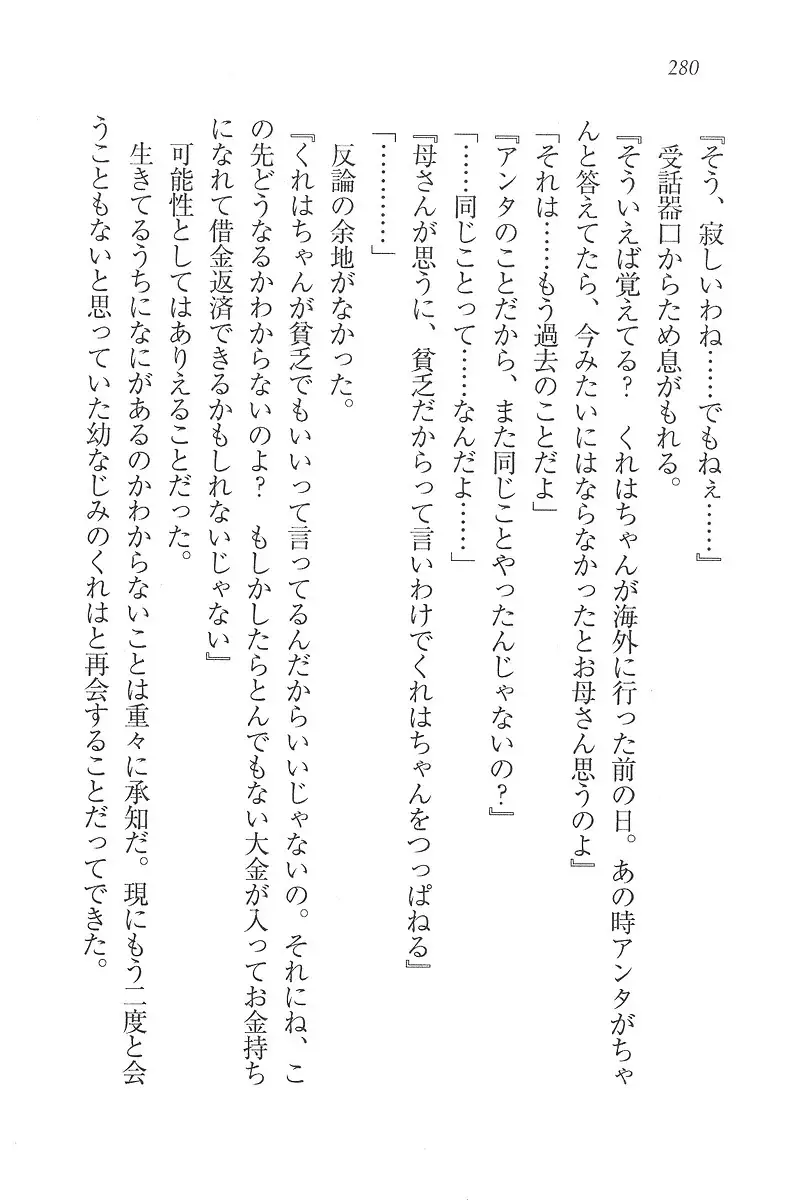 280
『そう、寂しいわね……でもねぇ……』
受話器口からため息がもれる。
『そういえば覚えてる？　くれはちゃんが海外に行った前の日。あの時アンタがちゃ
んと答えてたら、今みたいにはならなかったとお母さん思うのよ』
「それは……もう過去のことだよ」
『アンタのことだから、また同じことやったんじゃないの？』
「……同じことって……なんだよ……」
『母さんが思うに、貧乏だからって言いわけでくれはちゃんをつっぱねる』
「…………」
反論の余地がなかった。
『くれはちゃんが貧乏でもいいって言ってるんだからいいじゃないの。それにね、こ
の先どうなるかわからないのよ？　もしかしたらとんでもない大金が入ってお金持ち
になれて借金返済できるかもしれないじゃない』
可能性としてはありえることだった。
生きてるうちになにがあるのかわからないことは重々に承知だ。現にもう二度と会
うこともないと思っていた幼なじみのくれはと再会することだってできた。